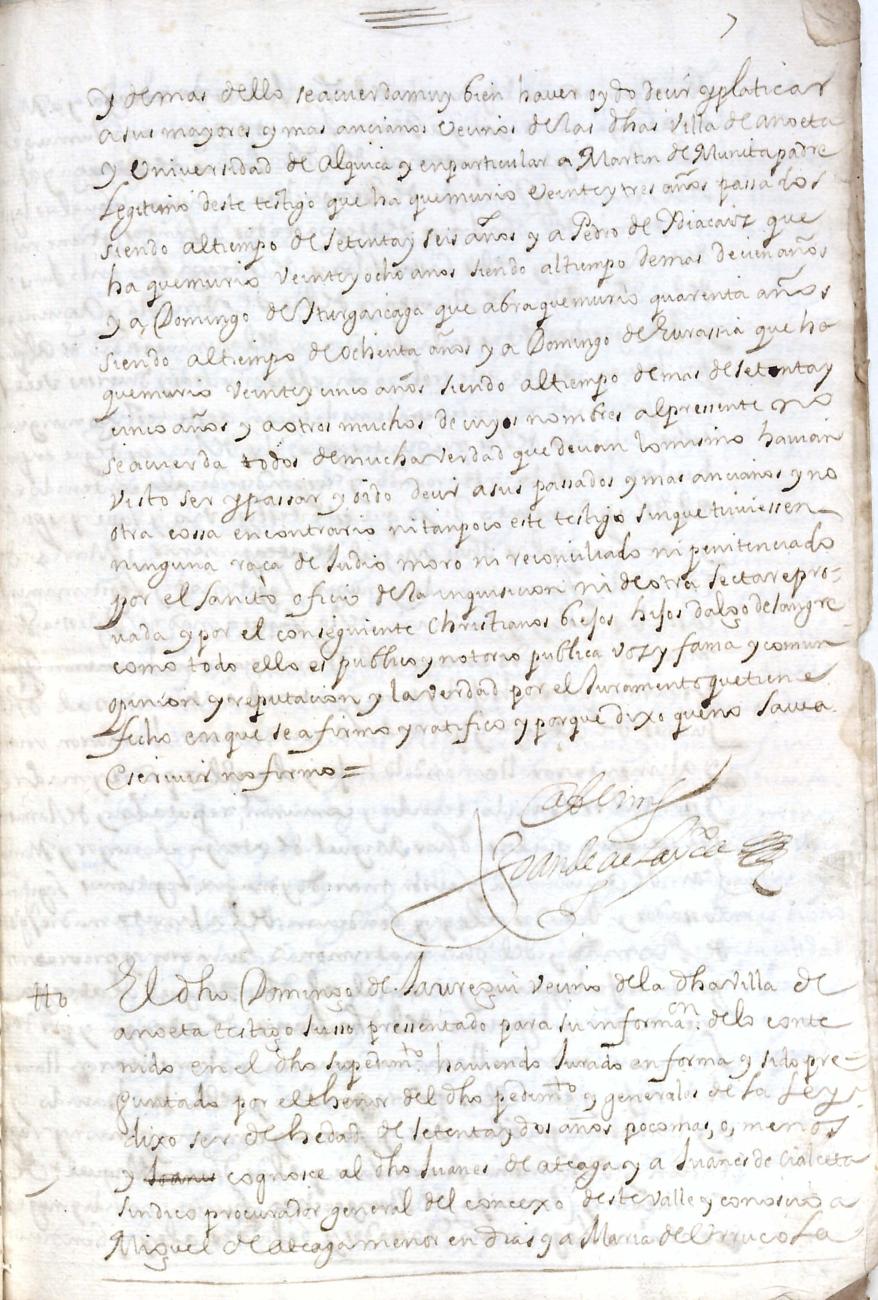 7
y demas dello seacuerda muy bien haver oydo decir y platicar
a sus mayores y mas ancianos vecinos de las dhas villa de anoeta
y Universidad de Alquiça y en particular a Martin de Munita padre
legitimo deste testigo que ha que murio veinte y tres años passados
siendo al tiempo de setenta y seis años y a Pedro de Ydiacaiz que
ha que murio veinte y ocho anos siendo al tiempo de mas de cien años
y a Domingo de Yturgaicaga que abra que murio quarenta años
siendo al tiempo de ochenta años y a Domingo de Eurassia que ha
que murio veinte y cinco años siendo al tiempo de mas de setenta y
cinco años y a otros muchos de cuyos nombres al pressente no
se acuerda todos de mucha verdad que decian lo mismo havian
visto ser y passar y oido decir a sus passados y mas ancianos y no
otra cossa en contrario ni tanpoco este testigo sin que tuviessen
ninguna raça de Judio moro ni reconciliado ni penitenciado
por el sancto oficio de la inquisicion ni de otra secta repro=
vada y por el consiguiente Christianos biejos hijos dalgo de sangre
como todo ello es publico y notorio publica voz y fama y comun
opinion y reputacion y la verdad por el Juramento que tiene
fecho en que se afirmo y ratifico y porque dixo que no savia
escrivir no firmo =
Ante mi
Joan
tto El dho Domingo de Jauregui vecino de la dha villa de
anoeta testigo suso pressentado para su informaon. de lo conte
nido en el dho su pedimto. haviendo Jurado en forma y sido pre=
guntado por el thenor del dho pedimto y generales de la Ley
dixo ser de hedad de setenta y dos años poco mas, o, menos
y cognosce al dho Juanes de ateaga y a Juanes de Cialceta
sindico procurador general del concexo deste valle y conoscio a
Miguel de ateaga menor en dias y a Maria de Urrucola